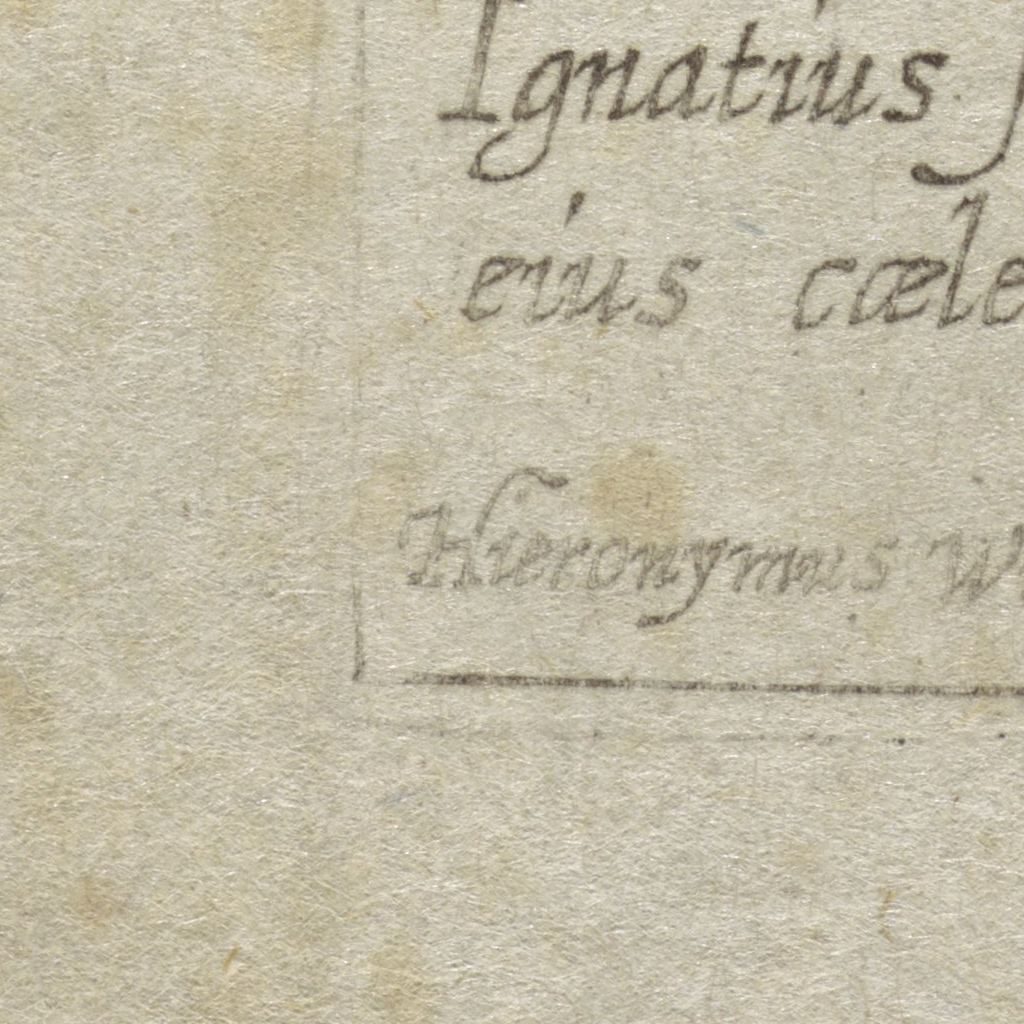 Ignatius
eius cæle
Hieronymus W